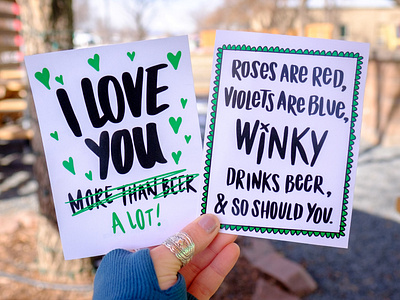 I LOVE
YOU
MORE THAN BEER
A LOT!
ROSES ARE RED,
VIOLETS ARE BLUE,
WiNKY
DRINKS BEER,
& SO SHOULD YOU.